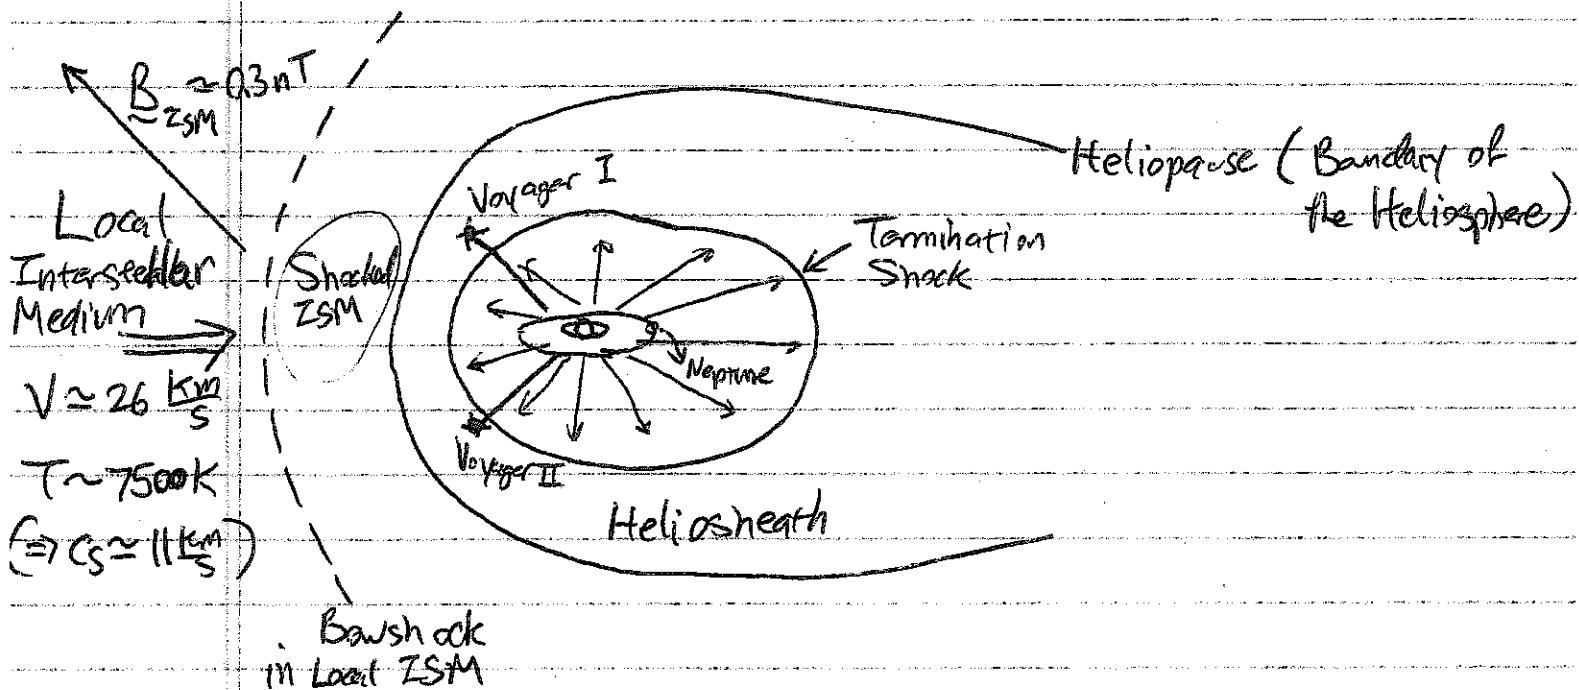 B ISM ≃ 0.3 nT
Local
Interstellar
Medium
V ≃ 26 km/s
T ~ 7500K
(⇒ Cs ≃ 11 km/s)
Shocked
ISM
Bowshock
in Local ISM
Voyager I
Voyager II
Neptune
Termination
Shock
Heliosheath
Heliopause (Boundary of
the Heliosphere)